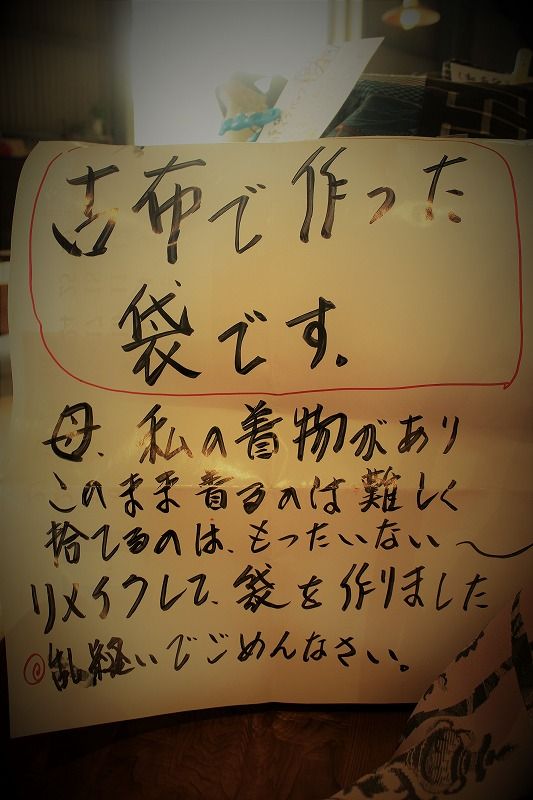 古布で作った
袋です。
母、私の着物があり
このまま着るのは難しく
捨てるのは、もったいない〜
リメイクして、袋を作りました
◎乱縫いでごめんなさい。